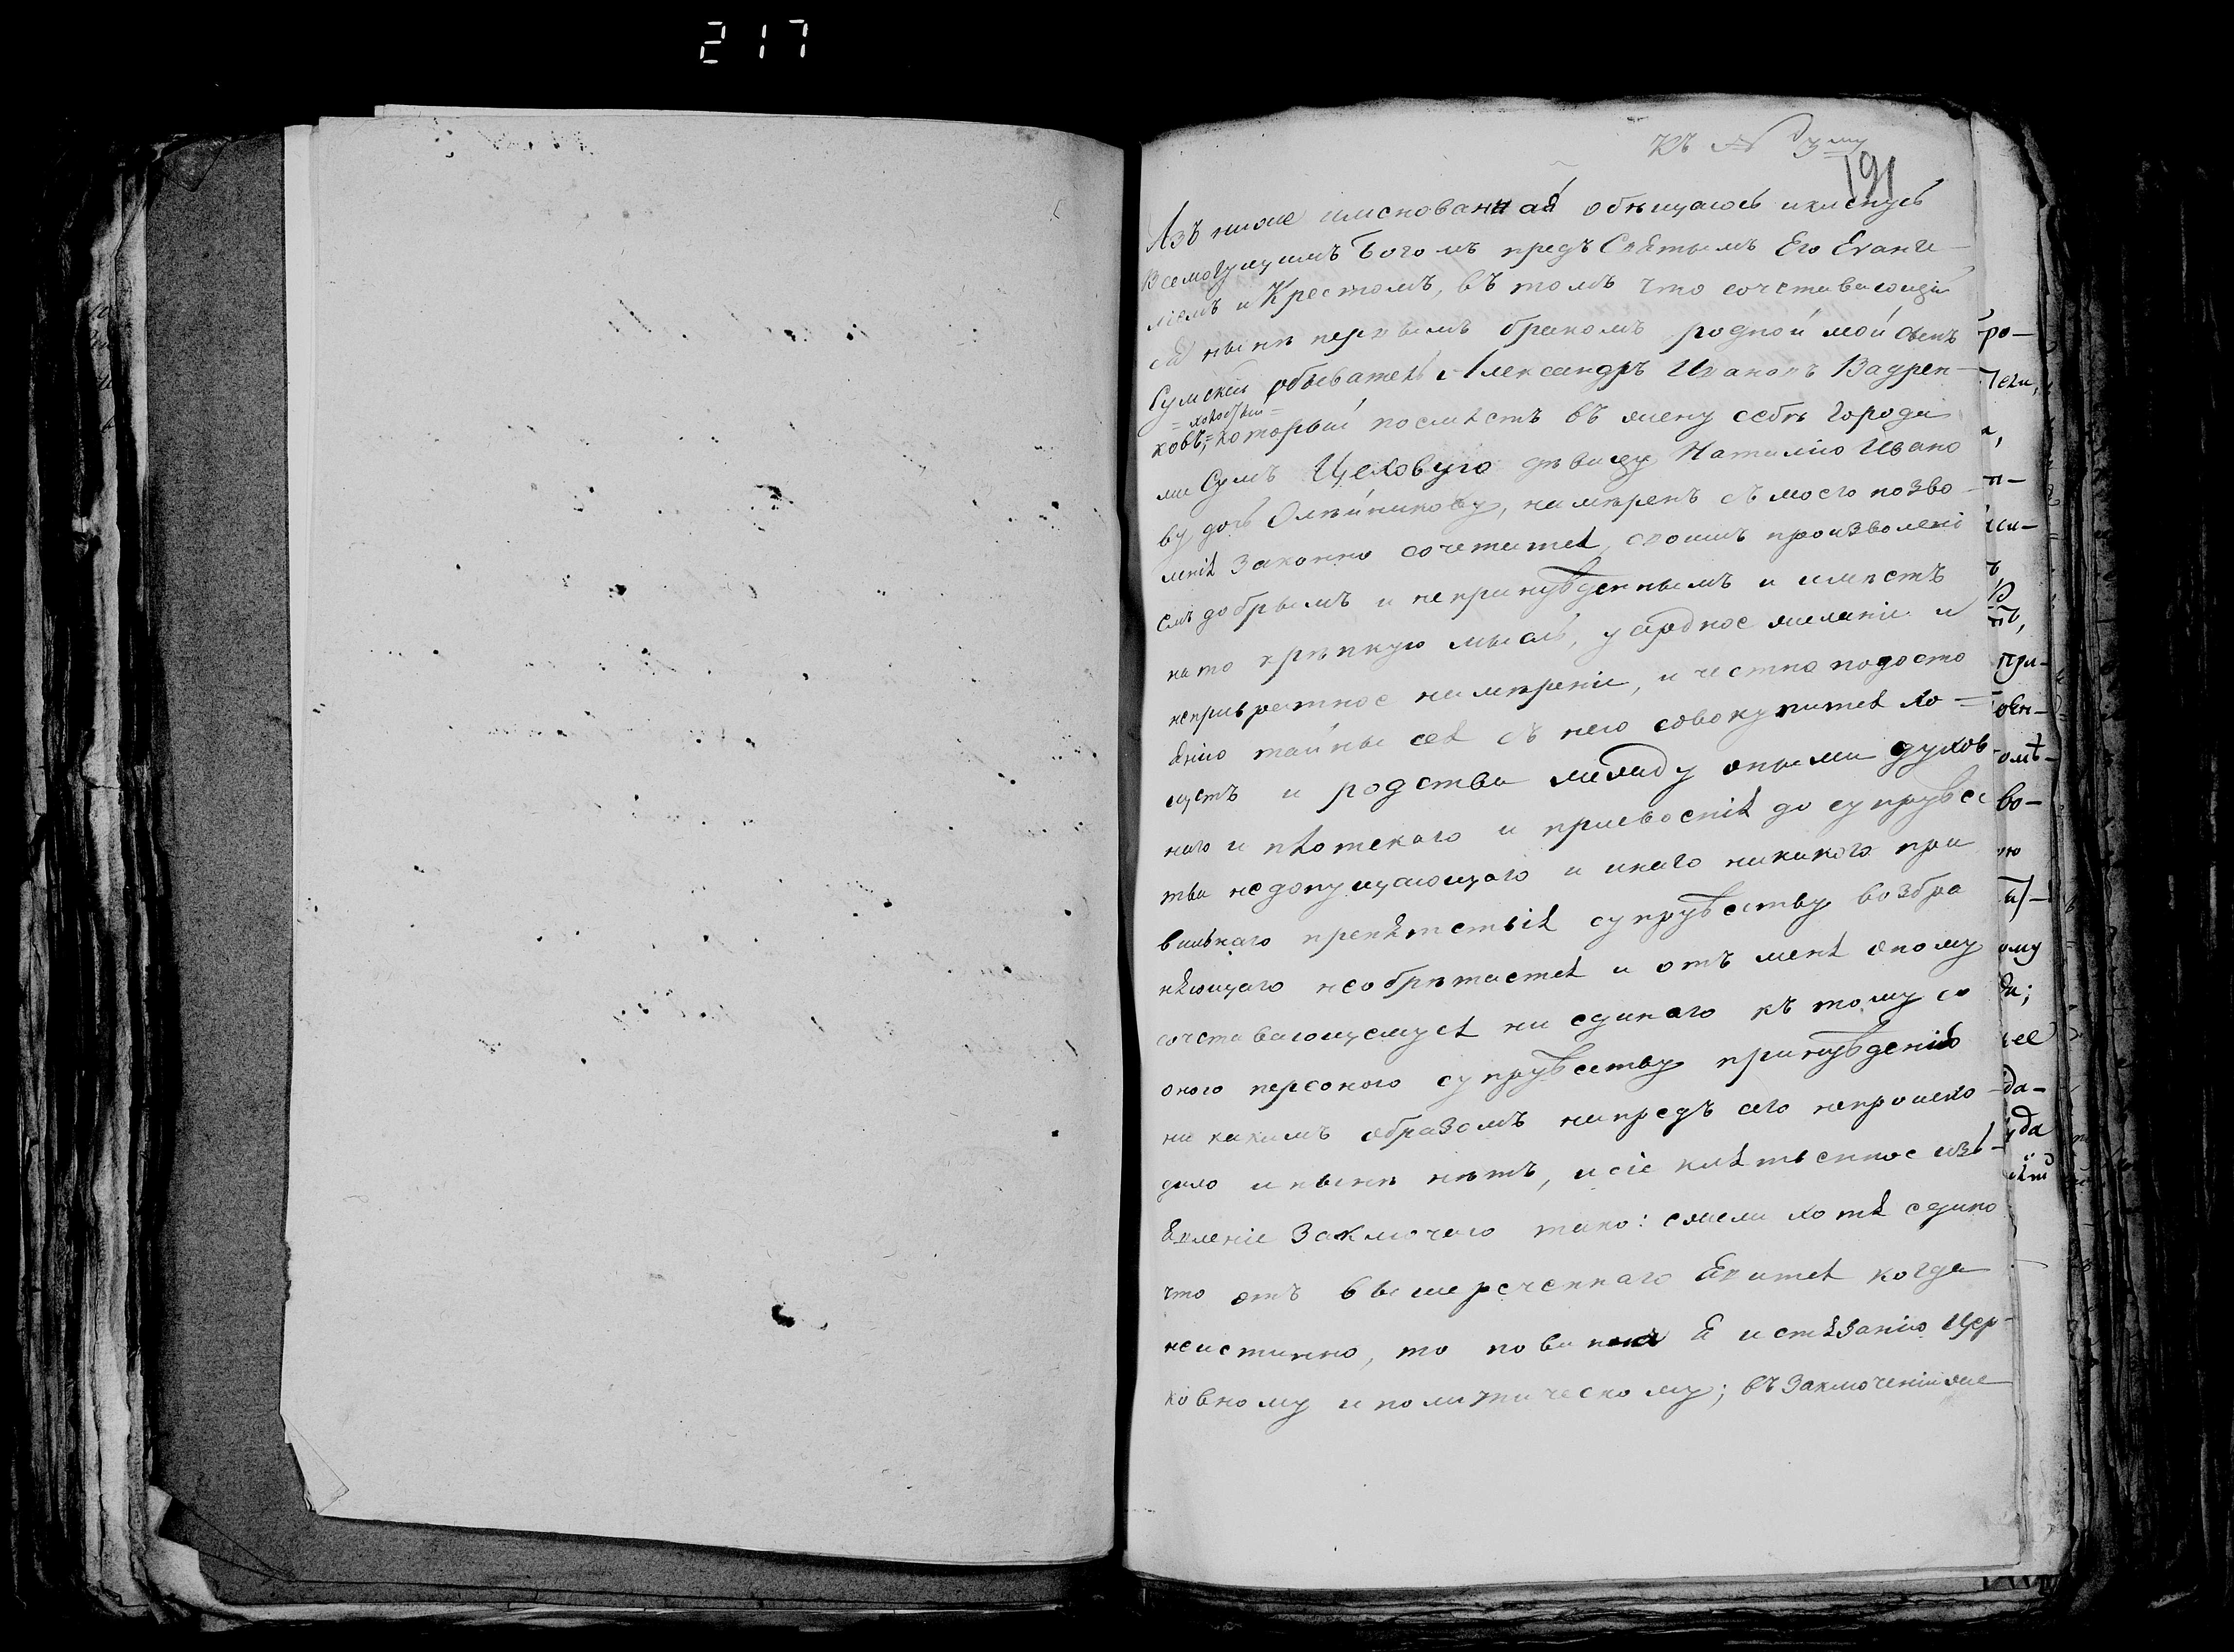 217
къ № 3му
191
Азъ ниже имянованная обѣщаюсь и клянусь
Всемогущимъ Богомъ предъ Святымъ Его Еванге-
ліемъ и Крестомъ, въ томъ что сочетавающій
ся нынѣ первымъ бракомъ родной мой сынъ
Сумскій обыватель Александръ Ивановъ
= холостый =
ковъ, = который поемлетъ въ жену себѣ города
ми Сумъ Цеховую дѣвицу Наталію Ивано
ву дочь Олѣйникову, намѣренъ съ моего позво-
ленія Законно сочетатся своимъ произволені
емъ добрымъ и непринужденнымъ и имѣетъ
на то крѣпкую мысль, усердное желаніе и
непривратное намѣреніе, и честно по досто
янію тайны сея съ нею совокупится хо-
щетъ и родства между оными духов-
наго и плотскаго и присвоенія до супружес
тва недопущающаго и инаго никакого пра
вильнаго препятствія супружеству возбра
няющаго необрѣтается и отъ меня оному
сочетавающемуся ни единаго къ тому со
оною персоною супружеству принужденія
никакимъ образомъ напредъ сего непроисхо-
дило и нынѣ нѣтъ, и сіе клятвенное изъ-
явленіе Заключаю тако: ежели хотя едино
что отъ вышереченнаго явится когда
неистинно, то повинна я истязанію Цер-
ковному и политическому; въ заключеніи же
ро-
ели,
а,
п-
ъ
тъ,
при-
овен-
омъ-
во-
ую
ому
да;
ее
да-
да